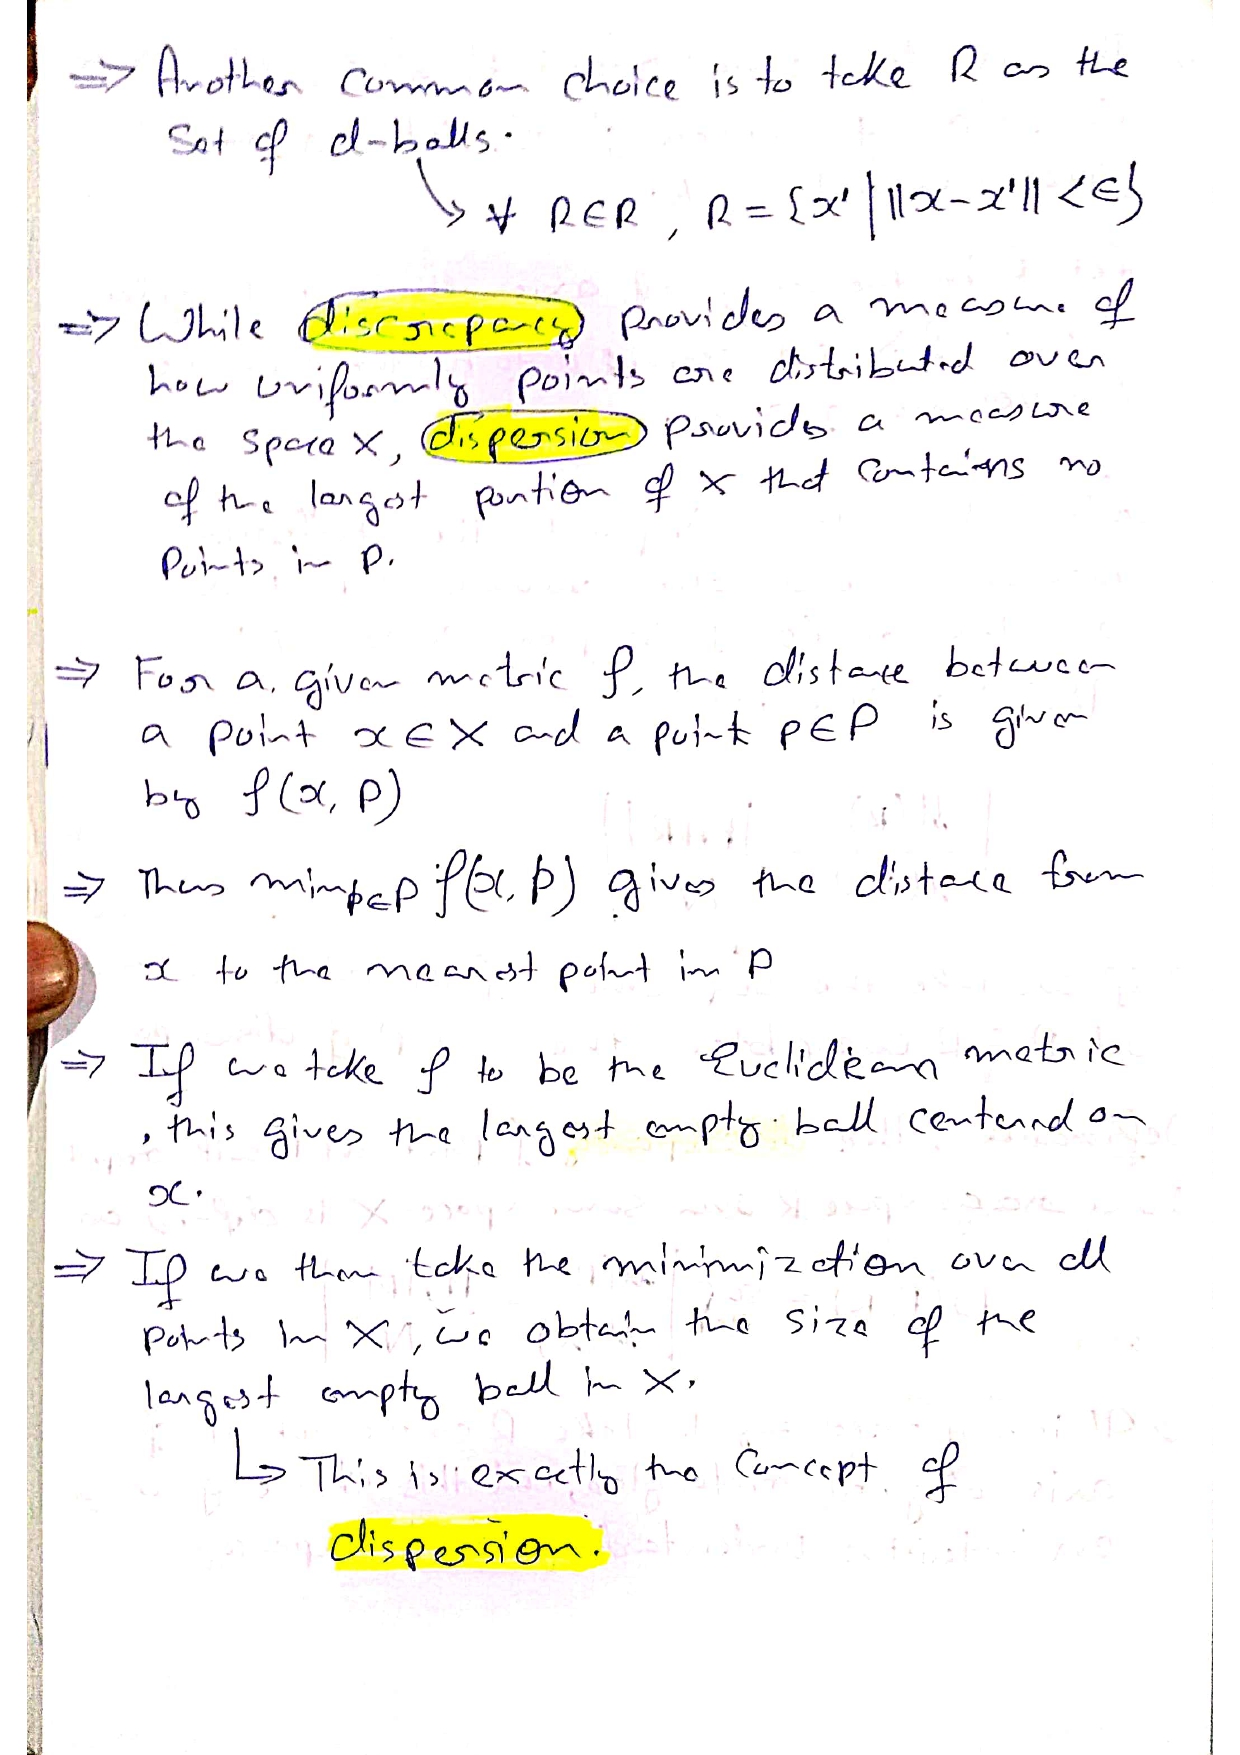 ⇒ Another common choice is to take R as the
Set of d-balls.
↳ ∀ R∈R, R = {x' | ||x-x'|| < ∈}
⇒ While discrepancy provides a measure of
how uniformly points are distributed over
the space X, dispersion provides a measure
of the largest portion of X that contains no
Points in P.
⇒ For a given metric ρ, the distance between
a point x ∈ X and a point p ∈ P is given
by ρ(x, p)
⇒ Thus min p∈P ρ(x, p) gives the distance from
x to the nearest point in P
⇒ If we take ρ to be the Euclidean metric
, this gives the largest empty ball centered on
x.
⇒ If we then take the minimization over all
points in X, we obtain the size of the
largest empty ball in X.
↳ This is exactly the Concept of
dispersion.